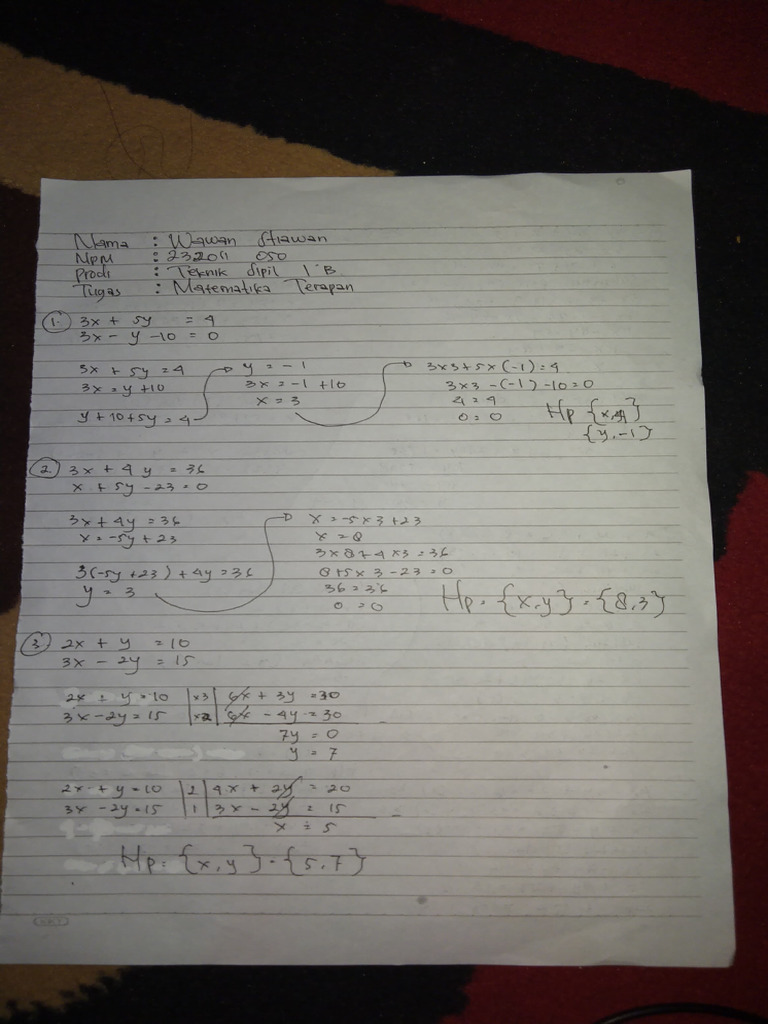 Nama : Wawan Stiawan
NPM : 232011 050
Prodi : Teknik Sipil 1 B
Tugas : Matematika Terapan
1. 3x + 5y = 4
3x - y - 10 = 0
3x + 5y = 4
3x = y + 10
y + 10 + 5y = 4
y = -1
3x = -1 + 10
x = 3
3x3 + 5x(-1) = 4
3x3 - (-1) - 10 = 0
4 = 4
0 = 0
Hp {x,
{y, -1}
2. 3x + 4y = 36
x + 5y - 23 = 0
3x + 4y = 36
x = -5y + 23
3(-5y + 23) + 4y = 36
y = 3
x = -5x3 + 23
x = 8
3x8 + 4x3 = 36
8 + 5x3 - 23 = 0
36 = 36
0 = 0
Hp = {x,y} = {8,3}
3. 2x + y = 10
3x - 2y = 15
2x + y = 10 | x3 | 6x + 3y = 30
3x - 2y = 15 | x2 | 6x - 4y = 30
7y = 0
y = 7
2x + y = 10 | 2 | 4x + 2y = 20
3x - 2y = 15 | 1 | 3x - 2y = 15
x = 5
Hp = {x,y} = {5,7}